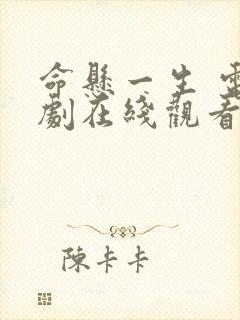 命懸一生 電
劇在綫觀看
陳卡卡